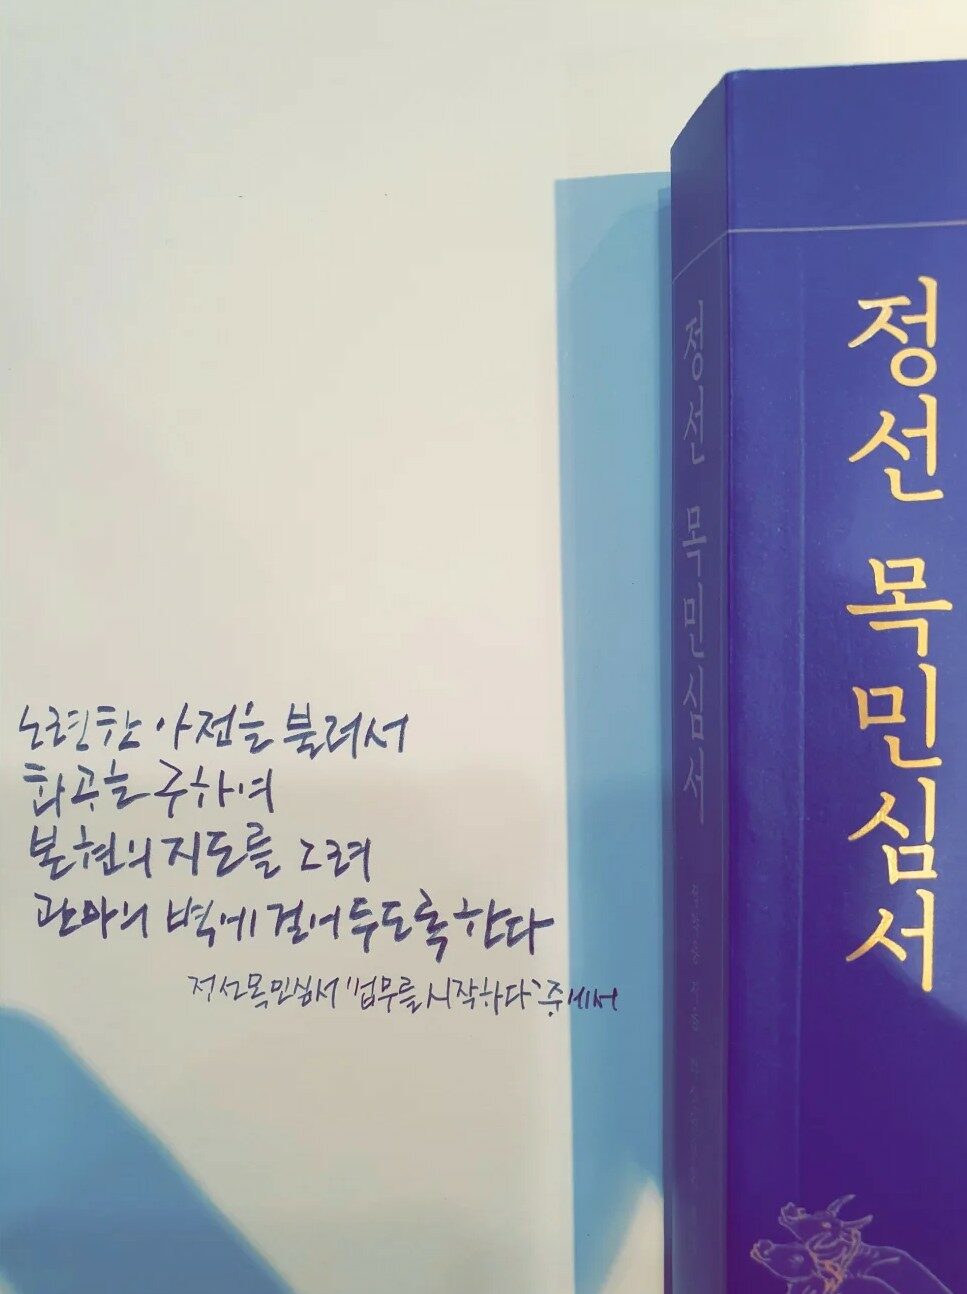 노련한 아전을 불러서
화공을 구하여
본현의 지도를 그려
관아의 벽에 걸어두도록 한다
정선목민심서 '업무를 시작하다' 중에서
정선 목민심서
정선 목민심서